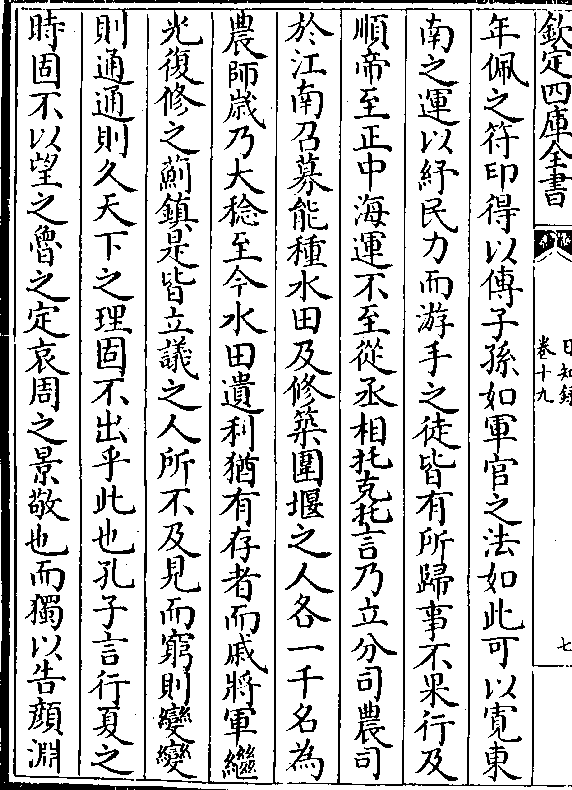 欽定四庫全書
日知録
卷十九
七
年佩之符印得以傳子孫如軍官之法如此可以寛東
南之運以紓民力而游手之徒皆有所歸事不果行及
順帝至正中海運不至從丞相托克托言乃立分司農司
於江南召募能種水田及修築圍堰之人各一千名為
農師嵗乃大稔至今水田遺利猶有存者而戚將軍繼
光復修之薊鎮是皆立議之人所不及見而窮則變變
則通通則久天下之理固不出乎此也孔子言行夏之
時固不以望之魯之定哀周之景敬也而獨以告顔淵